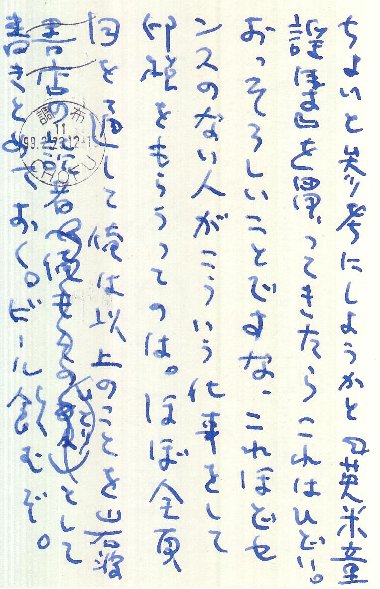 ちょいと参考にしようかと英米童
を買ってきたらこれはひどい。
おっそろしいことですな、これほどセ
ンスのない人がこういう仕事をして
印税をもらうってのは。ほぼ全頁
目を通して俺は以上のことを岩波
書店の読者 として
書きとめておく。ビール飲むぞ。
調布
11
99.2.23
CHOFU